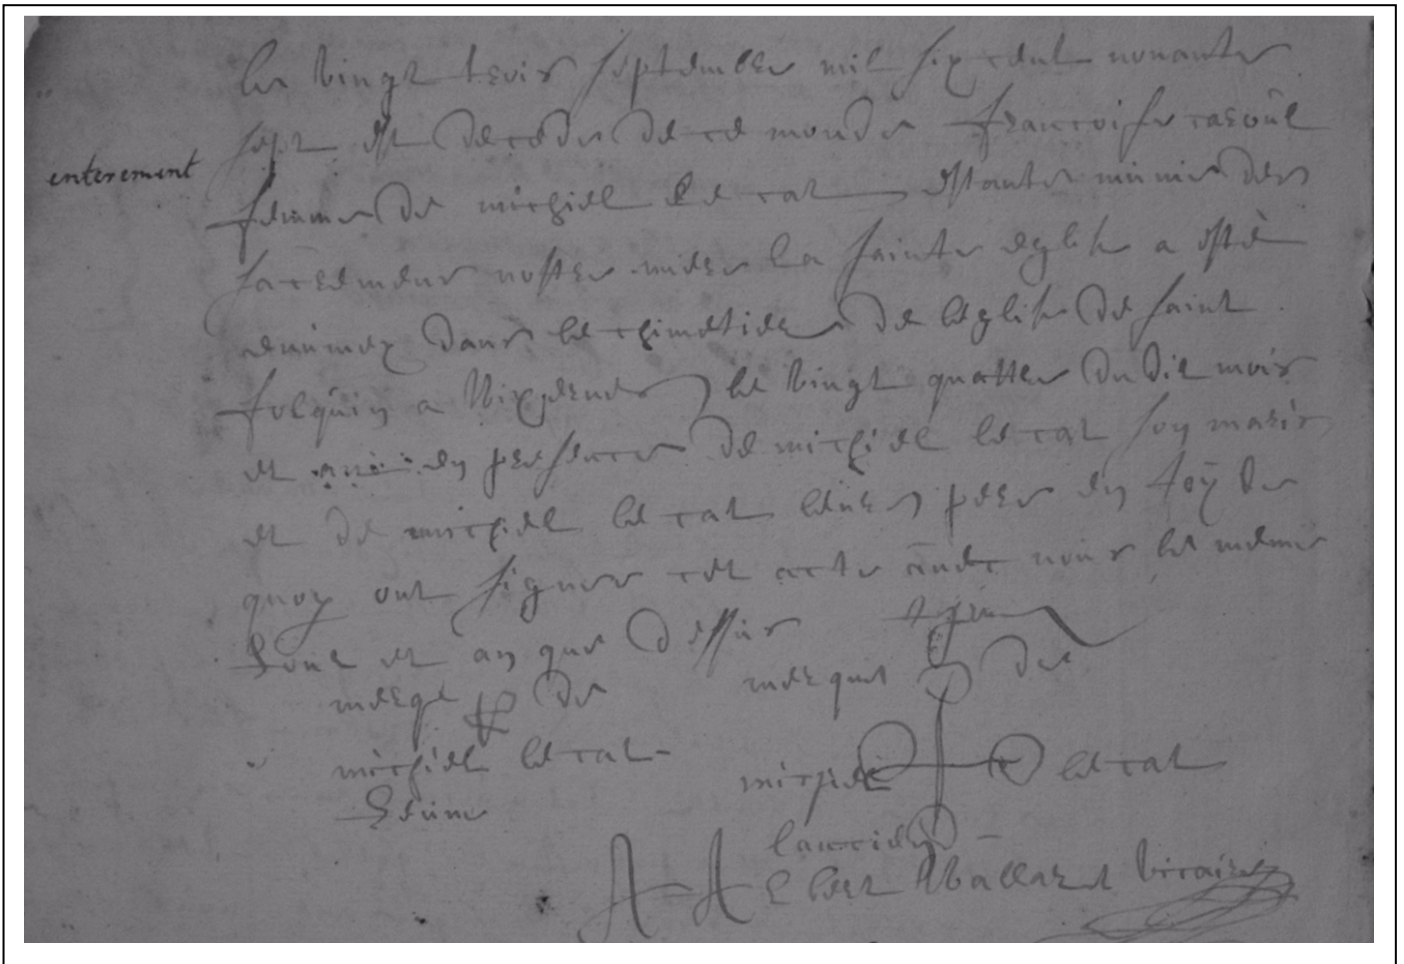 le vingt trois septembre mil six cent nonante
sept est decedee de ce monde francoise raoul
enterement
femme de michiel le cat estante munie des
sacremens nostre mere la sainte eglise a esté
dans le chimetiere de leglise de saint
folquin a le vingt quattre du dit mois
et en presence de michiel le cat son maris
et de michiel le cat leurs pere en foy de
quoy ont signer cet acte avec nous les mesme
jour et an que dessus
merqe de
merque de
michiel le cat
michiel le cat
jeune
lancien
Albert Wallart vicaire